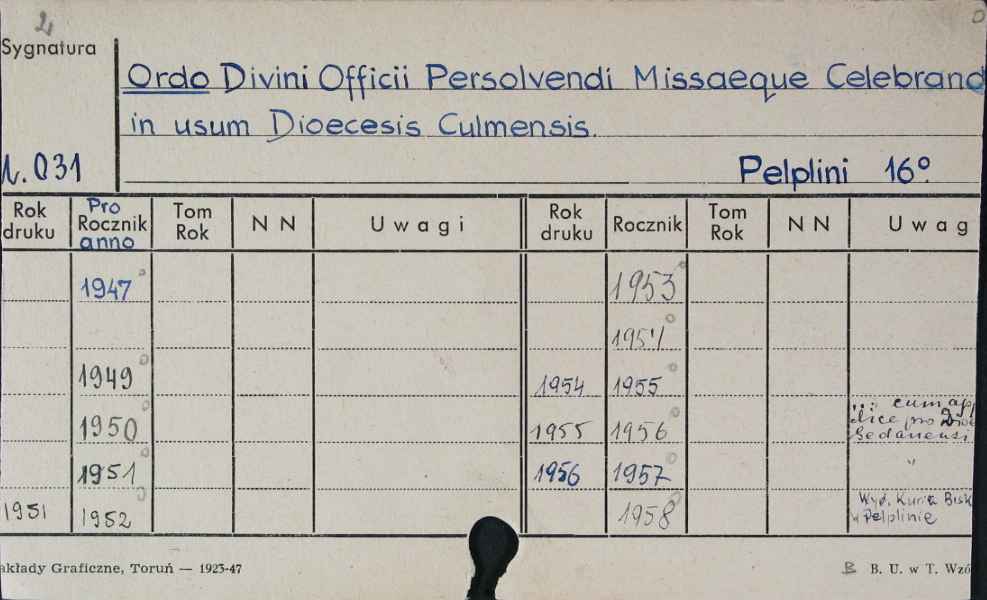 2
Sygnatura
Ordo Divini Officii Persolvendi Missaeque Celebrand
in usum Dioecesis Culmensis.
031
Pelplini 16°
Rok druku Pro Rocznik anno Tom Rok N N Uwagi Rok druku Rocznik Tom Rok N N Uwag
1947 1953
1954
1949 1954 1955
1950 1955 1956 ,,, cum app
dice pro Dioe
Gedanensi
1951 1956 1957 "
1951 1952 1958 Wyd. Kuria Bisk
w Pelplinie
akłady Graficzne, Toruń — 1923-47
B B. U. w T. Wzó